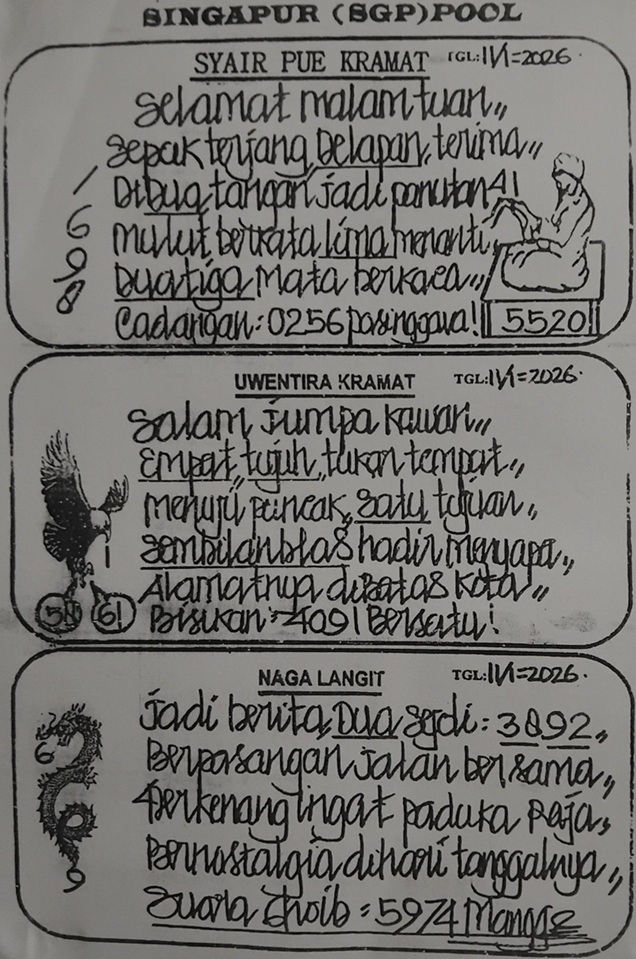 SINGAPUR (SGP) POOL
SYAIR PUE KRAMAT TGL: 11/1=2026.
Selamat malam tuan,,
Sepak terjang, Delapan, terima,,
Di Dua tangan, jadi panutan
mulut berkata lima menanti,,
Dua tiga Mata berkaca,,
Cadangan: 0256 pasinggava! 5520
1
6
9
8
UWENTIRA KRAMAT TGL: 11/1=2026.
Salam jumpa kawan,,
Empat, tujuh, tukar tempat,,
menuju puncak, satu tujuan,,
Sembilanblas hadir menyapa,,
Alamatnya dibatas kota,,
Bisikan: 4091 Bersatu!
61
NAGA LANGIT TGL: 11/1=2026.
Jadi berita, Dua sejdi: 3892,,
Berpasangan jalan bersama,,
Terkenang ingat paduka Raja,
Bernostalgia dihari tanggalnya,,
Suara Ghoib: 5974 Mangge
6
9